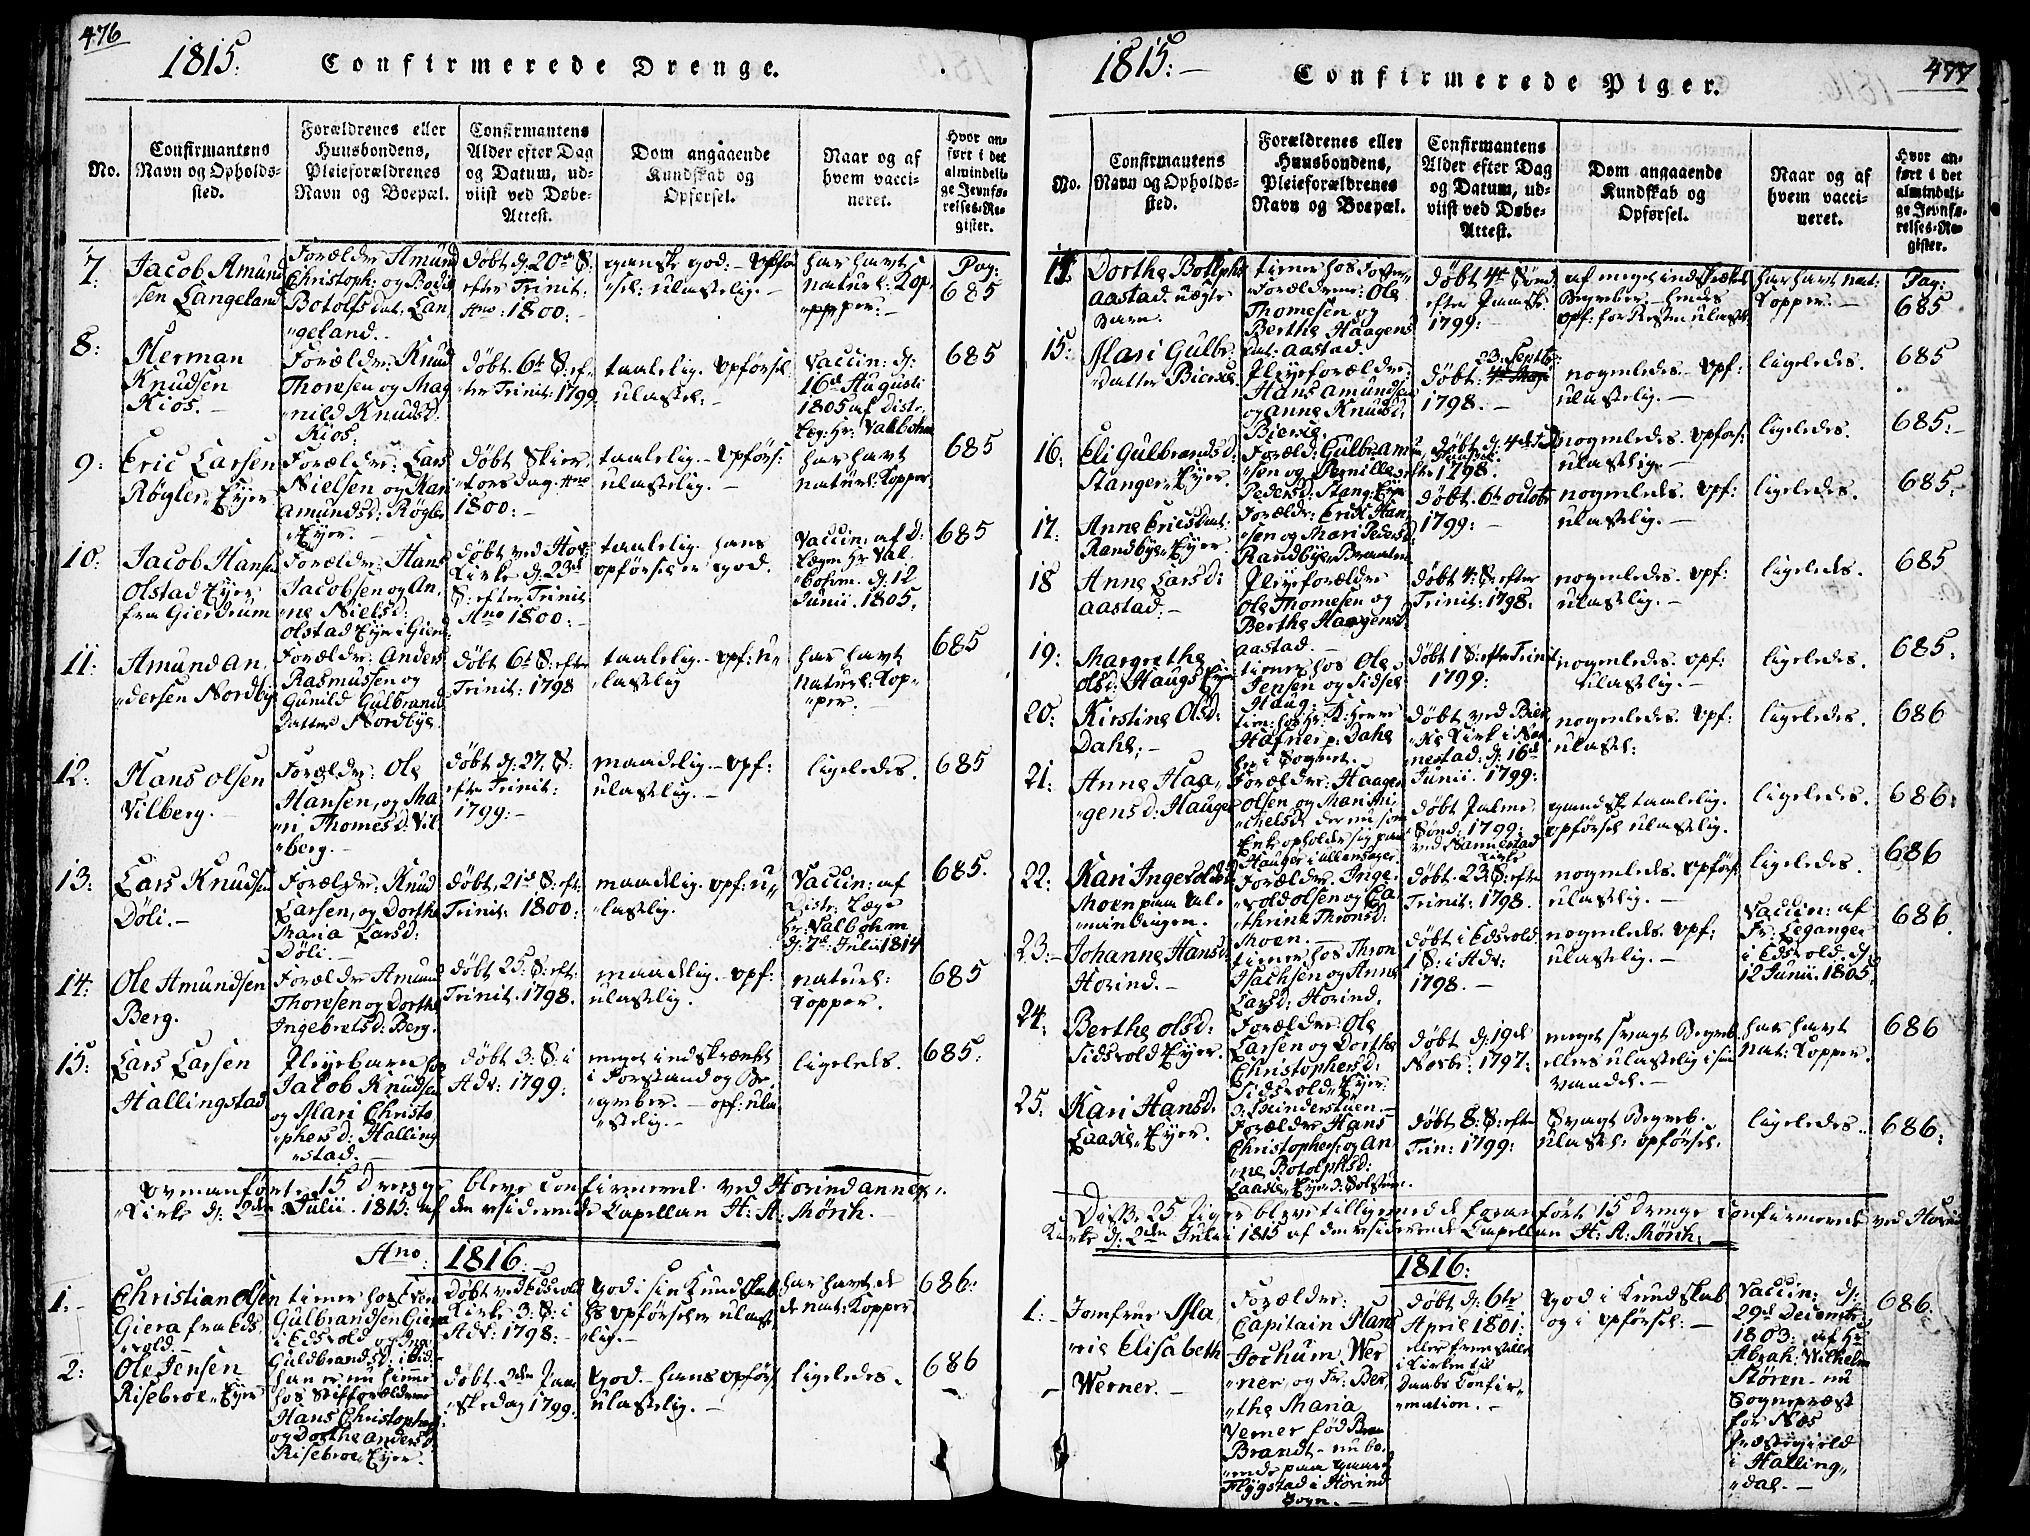 476
1815:
Confirmerede Drenge.
No.
Confirmantens
Navn og Opholds-
sted.
Forældrenes eller
Huusbondens,
Pleieforældrenes
Navn og Boepæl.
Confirmantens
Alder efter Dag
og Datum, ud-
viist ved Døbe-
Attest.
Dom angaaende
Kundskab og
Opførsel.
Naar og af
hvem vacci-
neret.
Hvor an-
ført i det
almindeli-
ge Jevnfø-
relses-Re-
gister.
7:
Jacob Amund
sen Langeland
Forældre Amund
Christoph: og Bodil
Botolfsdat: Lan,
"geland.
døbt d: 20de S:
efter Trinit:
Ano: 1800:
ganske god: - opfø
"sel: ulastelig. -
har havt
naturl: Kop,
"per: -
Pag:
685
8:
Herman
Knudsen
Kios. -
Forældr: Knud
Thoresen og Mag
"nild Knudsd:
Kios:
døbt 6te S: ef,
"ter Trinit: 1799.
taalelig. opførsel
ulastel: -
Vaccin: d:
16de Augusti
1805 af distr,
Læg: Hr: Valbohm
685
9:
Eric Larsen
Røgler, Eyer
Forældre: Lars
Nielsen og Kari
Amundsd: Røgler
Eyer. -
døbt Skier,
"torsdag Ano
1800: -
taalelig. - opførs:
ulastelig. -
har havt
naturl: Kopper
685
10:
Jacob Hansen
Olstad Eyer
fra Gierdrum
Forældre: Hans
Jacobsen og An,
"ne Nielsd:
Olstad Eyer i Gierd:
døbt ved Hov:
Kirke d: 23de
S: efter Trinit
Ano 1800: -
taalelig. hans
opførsel er god.
Vaccin: af d:
Lægen Hr Val
"bohm. d: 12
Junii. 1805.
685
11:
Amund An,
"dersen Nordbye
Forældre: Anders
Rasmussen og
Gunild Gulbrand
Datter Nordbye.
døbt 6te S: efter
Trinit: 1798
taalelig. - opf: u,
"lastelig
har havt
naturl: Kop,
"per. -
685
12:
Hans Olsen
Vilberg. -
Forældre: Ole
Hansen, og Ma
"ri Thomesd: Vil,
"berg. -
døbt d: 27. S:
efter Trinit:
1799: -
maadelig. - opf:
ulastelig. -
ligeledes.
685
13:
Lars Knudsen
Döli. -
Forældre: Knud
Larsen, og Dorthe
Maria Larsd:
Döli. -
døbt, 21de S: eft:
Trinit: 1800:
maadelig. opf: u,
"lastelig.
Vaccin: af
Distr: Læge
Hr: Valbohm
d: 7de Julii 1814
685.
14:
Ole Amundsen
Berg.
Forældre Amund
Thoresen og Dorthe
Ingebretsd: Berg.
døbt 25: S: eft:
Trinit. 1798.
maadelig. - opf:
ulastelig.
naturl:
Kopper.
685
15:
Lars Larsen
Hallingstad
Pleyebarn hos
Jacob Knudsen
og Mari Christo
"phersd: Halling
"stad. -
døbt 3: S: i
Adv: 1799:
meget indskrænkt
i Forstand og Be,
"greber. - opf: ula,
"stelig. -
ligeleds.
685:
Ovenanførte 15 Drenge bleve Confirmerede ved Hovind annex.
Kirke d: 2den Julii. 1815: af den residerende Capellan H: A: Mørch. -
Ano: 1816: -
1: -
Christian Olsen
Giera fra Eds,
"vold. -
tiener hos Iver
Gulbrandsen Giera
i Edsvold og Inge
Guldbrandsd: ibid:
Døbt ved Edsvold
Kirke 3: S: i
Adv: 1798: -
god i sin Kundskab
hs opførsel er ulast,
"elig. -
har havt de
de nat: Kopper
686:
2:
Ole Jensen
Risebroe, Eyer
han er nu hiemme
hos Stifforældrene
Hans Christophers:
og Dorthe Andersd:
Risebroe Eyer.
døbt 2den Paa
"skedag 1799:
god. - hans opførs:
ulastelig. -
ligeledes.
686
477
1815: -
Confirmerede Piger.
No.
Confirmantens
Navn og Opholds-
sted.
Forældrenes eller
Huusbondens,
Pleieforældrenes
Navn og Boepæl.
Confirmantens
Alder efter Dag
og Datum, ud-
viist ved Døbe-
Attest.
Dom angaaende
Kundskab og
Opførsel.
Naar og af
hvem vacci-
neret.
Hvor an-
ført i det
almindeli-
ge Jevnfø-
relses-Re-
gister.
14:
Dorthe Bottolphs
Aastad. uægte
Barn.
tiener hos Foster,
"forældrene: Ole
Thomesen og
Berthe Haagens
Dat: Aastad.
døbt 4de Sønd
efter Paaske
1799:
af meget indskrænkede
Begreber. - hendes
opf: for Resten ulastl:
har havt nat:
Kopper. -
Pag:
685
15:
Mari Gulbr:
"datter Bierke
Pleyeforældre
Hans Amundsen
og Anne Knudsd:
Bierke.
23: Septb:
døbt: 4de Maji
1798. -
nogenledes. - opf:
ulastelig. -
ligeledes.
685
16:
Eli Gulbrandsd:
Stanger, Eyer.
Foræld: Gulbr: Am
"sen og Pernille
Pedersd: Stang: Eyer
døbt d: 4de S:
efter 1798.
nogenledes. opførs:
ulastelig. -
ligeledes.
685: -
17:
Anne Ericsdat:
Randbye, Eyer.
Forældr: Erick Han,
"sen og Mari Pedersd:
Randbye Braaten
døbt. 6te Octobr
1799: -
nogenledes. opf:
ulastelig. -
ligeledes.
685:
18
Anne Larsd:
Aastad: -
Pleyeforældre
Ole Thomesen og
Berthe Haagensd:
Aastad. -
døbt 4: S: efter
Trinit: 1798.
nogenledes. opf:
ulastelig. -
ligeledes.
685
19:
Margrethe
Olsd: Haugs Eyer
tiener hos Ole
Jensen og Sidsel
Haug:
døbt 1 S: efter Trinit
1799:
nogenledes. opf:
ulastelig. -
ligeledes.
685:
20:
Kirstine Olsd:
Dahl: -
tien: hos Hr: K: Herre
Hafner p: Dahl
her i Sognet.
døbt ved Bier,
"ke Kirk i Nan
nestad. d: 16de
Junii. 1799:
nogenledes. opf:
ulastel:
ligeledes.
686
21:
Anne Haa,
"gensd: Hauger
Forældre: Haagen
Olsen og Mari Mi,
"chelsd: der nu som
Enke opholder sig paa
Hauger i Ullensager.
døbt Palme
Sønd: 1799:
ved Nannestad
Kirke
gandske taalelig.
opførsel ulastelig.
ligeledes.
686:
22:
Kari Ingevoldsd
Moen paa Al,
"mindingen.
Forældre. Inge,
"vold Olsen og Ca
"thrine Thronsd:
Moen. -
døbt. 23: S: efter
Trinit: 1798.
nogenledes. opførs:
ulastelig. -
ligeledes.
686
23: -
Johanne Hansd:
Hovind. -
tiener hos Thron
Isachsen og Anne
Larsd: Hovind.
døbt i Edsvold
1 S: i Adv:
1798. -
nogenledes. opf:
ulastelig. -
Vaccin: af
Fr: Leganger
i Edsvold. d:
12 Junii. 1805.
686.
24:
Berthe Olsd:
Sidsvold Eyer.
Forældre: Ole
Larsen og Dorthe
Christophersd:
Sidsvold, Eyer:
døbt d: 19de
Novbr: 1797:
meget svagt Begreb.
ellers ulastelig i sin
Vandel. -
har havt
nat: Kopper.
686
25:
Kari Hansd.
Laake, Eyer.
Forældre Hans
Christophers: og An
"ne Botolphsd:
Laake, Eyer d: Solstuen.
døbt 8: S: efter
Trin: 1799:
Svagt Begreb.
ulastel: opførsel.
ligeledes.
686:
Disse 25 Piger bleve tilligemed de foranførte 15 Drenge Confirmerede ved Hovind
Kirke d: 2den Julii 1815 af den residerende Capellan H: A: Mørch: -
1816:
1: -
Jomfrue Ma,
"rie Elisabeth
Werner. -
Forældre:
Capitain Hans
Jochum Wer
"ner, og Fr: Ber,
"the Maria
Verner fød
Brandt - nu bo,
"ende paa Gaard
Flygstad i Hovind
Sogn. -
døbt d: 6te
April 1801:
eller fremstillet
i Kirken til
Daabs Confir,
"mation. -
God i Kundskab
og i opførsel: -
Vaccin: d:
29de Decembr
1803: af Hr
Abrah: Wilhelm
Støren - nu
Sognepræst
for Næs
Præstegield
i Halling,
"dal. -
686: